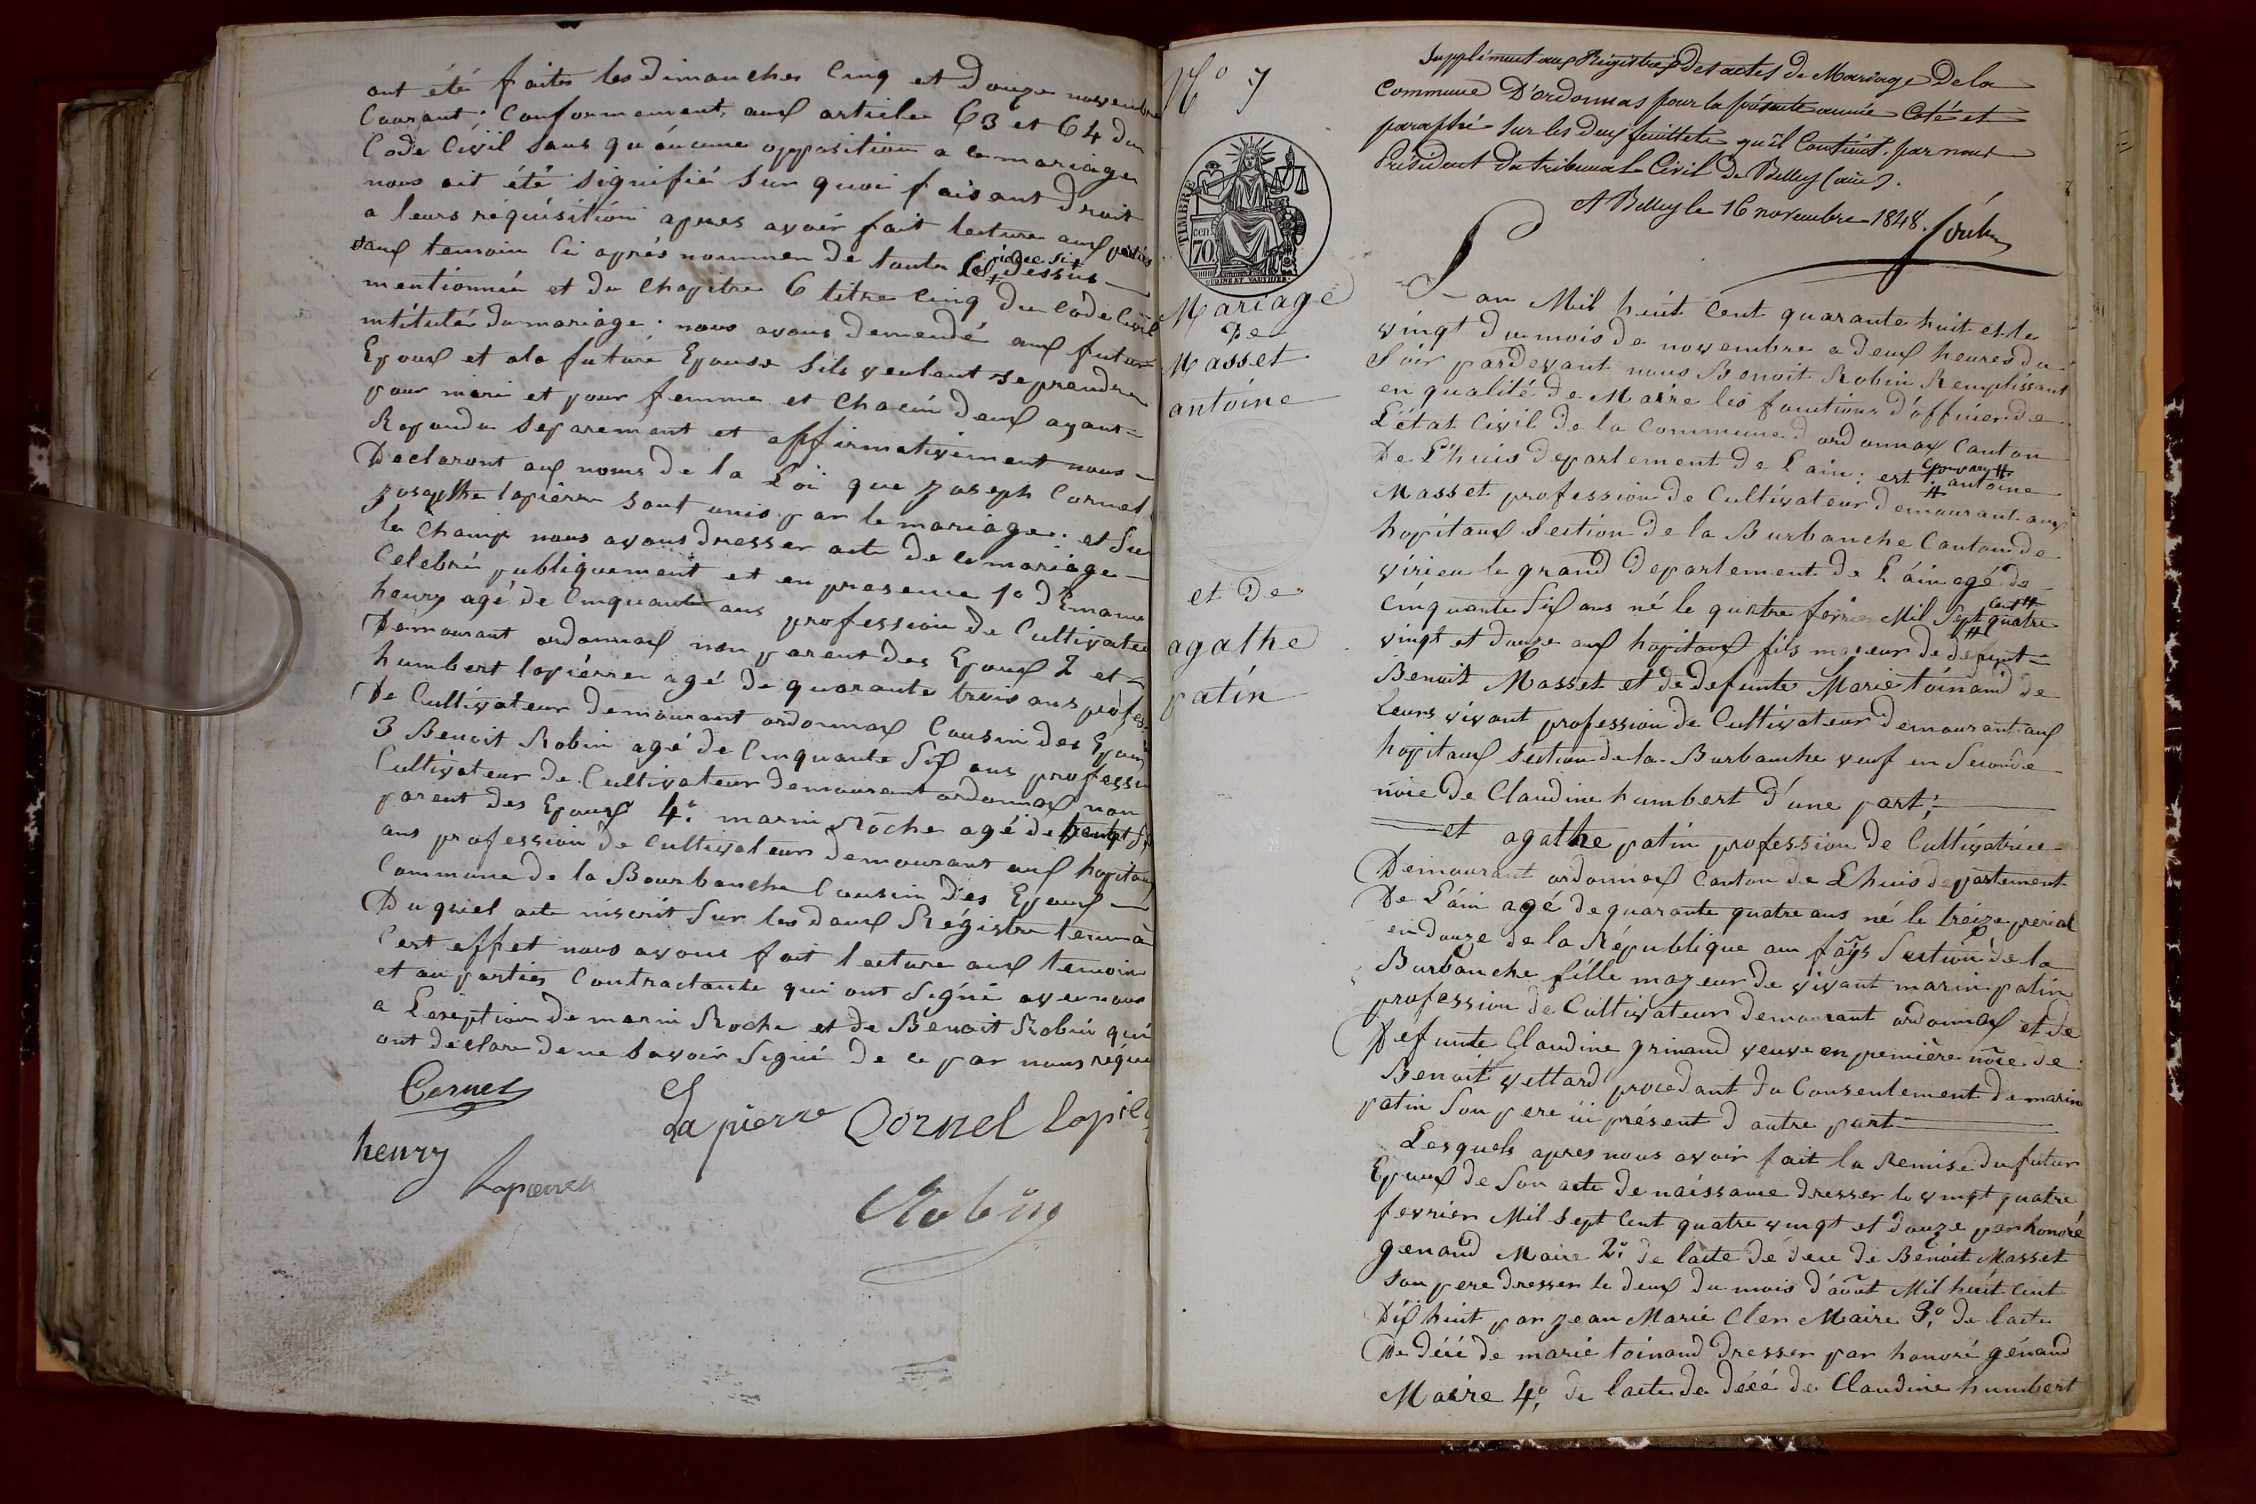 ont été faites les dimanches Cinq et Douze novembre
Courant. Conformement aux articles 63 et 64 du
Code Civil sans qu'aucune opposition a ce mariage
nous ait été signifié sur quoi faisant droit
a leurs réquisition apres avoir fait lecture aux parties
aux temoin ci aprés nommer de toute les pièce ci dessus
mentionnée et du Chapitre 6 titre Cinq du Code Civil
intitulé du mariage. nous avons demendé aux futur
Epoux et ala future Epouse Sils veulent se prendre
pour mari et pour femme et Chacun deux ayant
Repondu separement et affirmativement nous
Declaront aux noms de la Loi que joseph Cornel
josepthe lapierre sont unis par le mariage. et sur
le Champ nous avons dresser acte de ce mariage
Celebré publiquement et en presence 1o d'Emanu
henry agé de Cinquante ans profession de Cultivateu
Demourant ordonnax non parent des Epoux 2 et
humbert lapiérre agé de quarante trois ans profes
De Cultivateur demourant ordonnax Cousin des Epoux
3 Benoit Robin agé de Cinquante Six ans professi
Cultivateur de Cultivateur demourant ordonnax non
parent des Epoux 4o. marin Roche agé de
ans profession de Cultivateur demourant aux hopitaux
Commune de la Bourbanche Cousin des Epoux
Du quel acte inscrit sur les deux Régistre tenu à
Cest effet nous avons fait lecture aux temoin
et au parties Contractante qui ont signé avec nous
a Lexeption de marin Roche et de Benoit Robin qui
ont déclare de ne savoir signé de ce par nous requi
Cornel
Lapierre Cornel lapie
henry
Lapierre
Robin
No 7
TIMBRE
cen 70
Mariage
De
Masset
antoine
et De
agathe
patin
Supplément aux Régistres des actes de Mariage De la
Commune D'ordonnas pour la présente année Coté et
paraphé sur les deux feuillets qu'il Contient. par nous
Président du tribunal Civil de Belley (ain).
A Belley le 16 novembre 1848.
Lan Mil huit Cent quarante huit et le
vingt du mois de novembre a deux heures du
Soir pardevant nous Benoit Robin Remplissant
en qualité de Maire les fonctions d'officier de
L'état Civil de la Commune d'ordonnax Canton
De Lhuis departement de Lain: est Comparu antoine
Masset profession de Cultivateur demourant aux
hopitaux Section de la Burbanche Canton de
virieu le grand Departement de L'ain agé de
Cinquante Six ans né le quatre fevrier Mil Sept Cent quatre
vingt et douze aux hopitaux fils majeur de defunt
Benoit Masset et de defunte Marie toinand de
leurs vivant profession de Cultivateur demourant aux
hopitaux section de la Burbanche veuf en Seconde
noce De Claudine humbert d'une part;
et agathe patin profession de Cultivatrice
Demourant ordonnax Canton de Lhuis departement
De L'ain agé de quarante quatre ans né le treize perial
en douze de la République au fays Section de la
Burbanche fille majeur de vivant marin patin
profession de Cultivateur demourant ordonnax et de
Defunte Claudine prinand veuve en premiére noce de
Benoit vettard procedant du Consentement de marin
patin Son pere ici présent d'autre part
Lesquels apres nous avoir fait la Remise du futur
Epoux de Son acte de naissance dresser le vingt quatre
fevrier Mil Sept Cent quatre vingt et douze par honoré
genand Maire 2o. de lacte de decé de Benoit Masset
Son pere dresser le deux du mois d'août Mil huit Cent
Dix huit par jean Marie Cler Maire 3o. de lacte
De décé de marie toinand dresser par honoré génand
Maire 4o. de lacte de décé de Claudine humbert